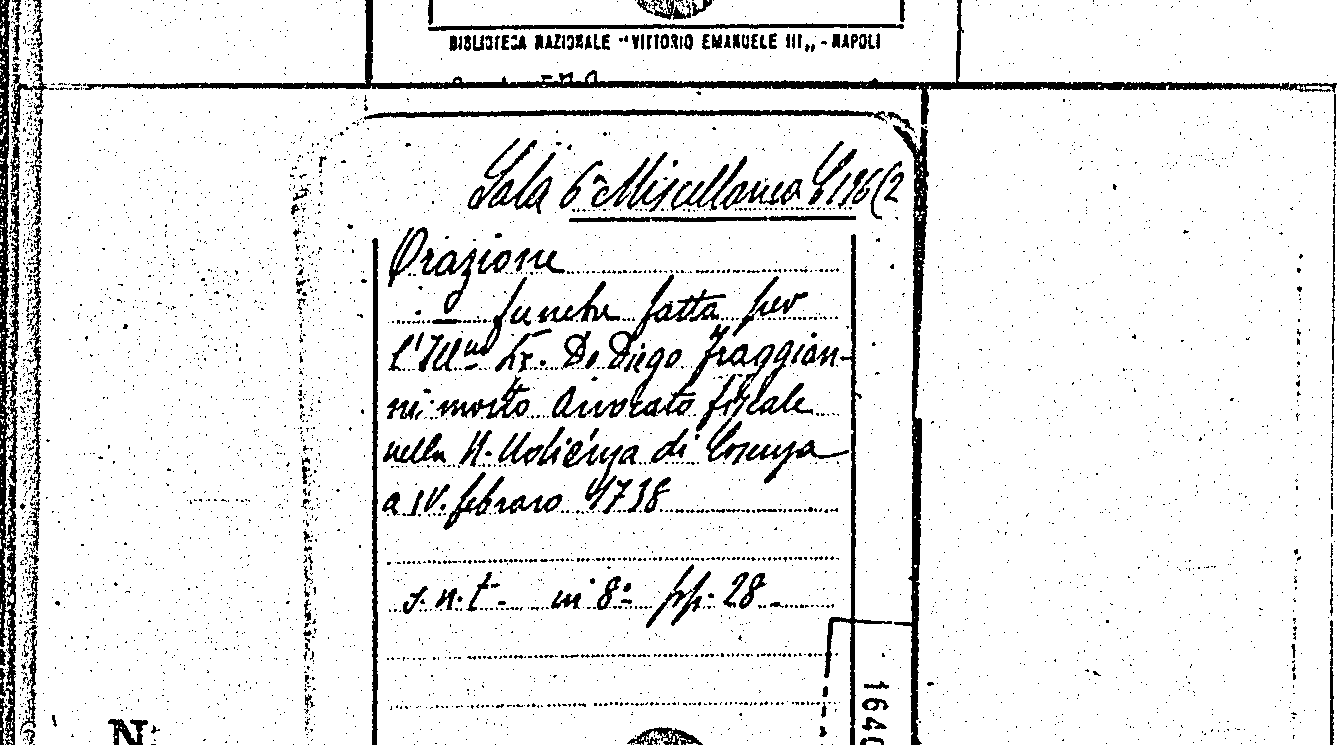 BIBLIOTECA NAZIONALE "VITTORIO EMANUELE III„ - NAPOLI
Sala 6ª Miscellanea 196(2
Orazione
funebre fatta per
l'Illmo Sr. D. Diego Fraggian-
ni morto Avvocato fiscale
nella R. Udienza di Cosenza
a IV. febraro 1738
s.n.t. in 8º pp. 28
1640
N